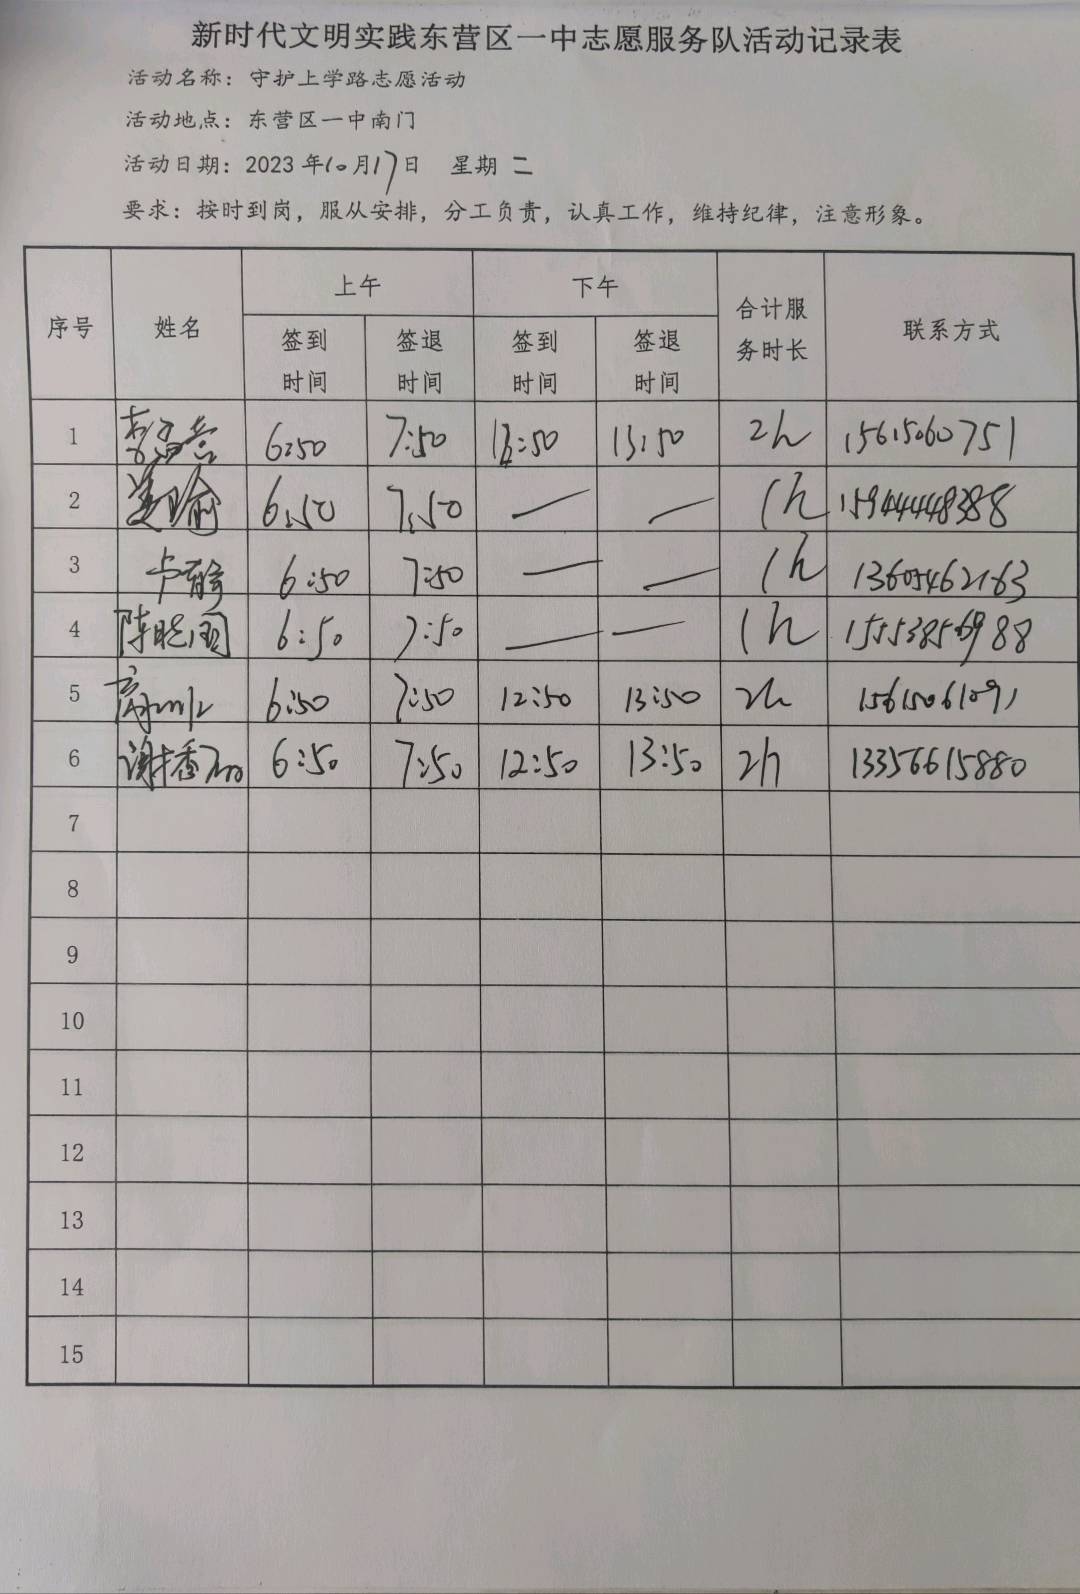 新时代文明实践东营区一中志愿服务队活动记录表
活动名称：守护上学路志愿活动
活动地点：东营区一中南门
活动日期：2023年10月17日 星期二
要求：按时到岗，服从安排，分工负责，认真工作，维持纪律，注意形象。
序号 姓名 上午 下午 合计服务时长 联系方式
签到时间 签退时间 签到时间 签退时间
1 6:50 7:50 13:50 2h 15615060751
2 6:50 7:50 — — 1h
3 卢 6:50 7:50 — — 1h 13605462163
4 陈晓 6:50 7:50 — — 1h
5 高 6:50 7:50 12:50 13:50 2h 15615061091
6 谢香 6:50 7:50 12:50 13:50 2h 13356615880
7
8
9
10
11
12
13
14
15